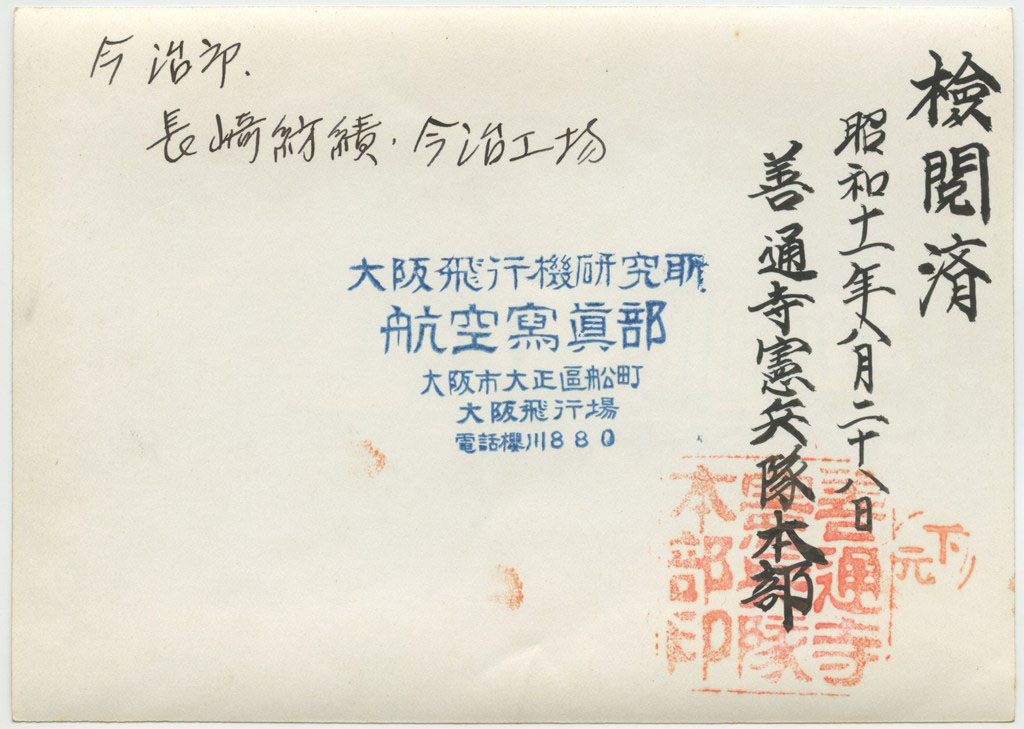 今治印.
長崎紡績・今治工場
大阪飛行機研究所
航空寫眞部
大阪市大正區船町
大阪飛行場
電話櫻川880
檢閲済
昭和十一年八月二十八日
善通寺憲兵隊本部
善通寺
憲兵隊
本部印
下元